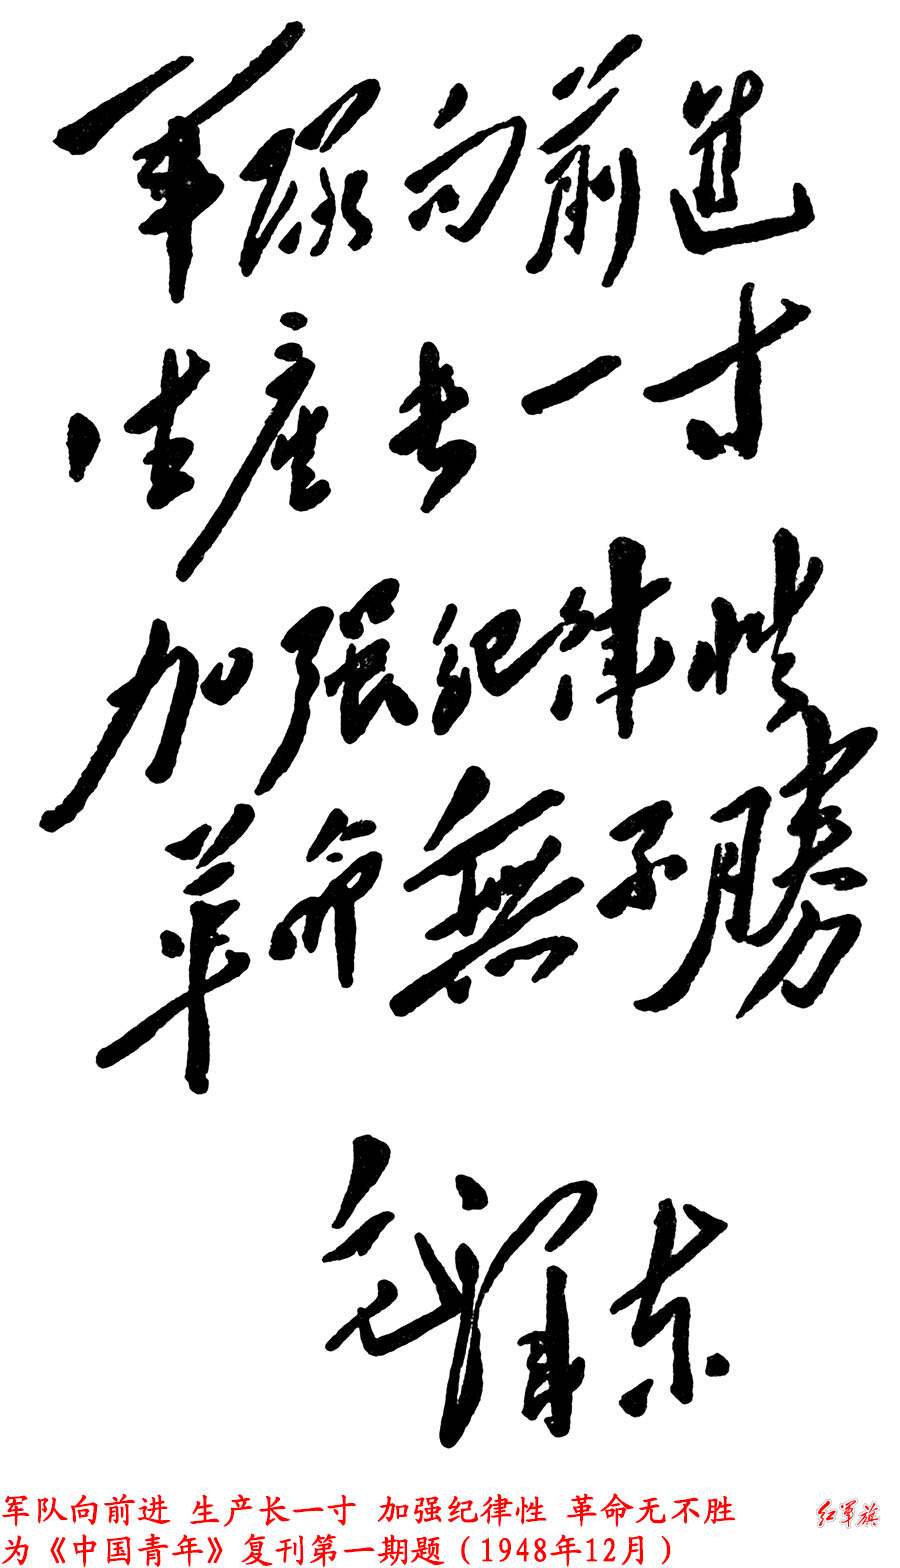 军队向前进
生产长一寸
加强纪律性
革命無不勝
毛泽东
军队向前进 生产长一寸 加强纪律性 革命无不胜
为《中国青年》复刊第一期题（1948年12月）
红军旗